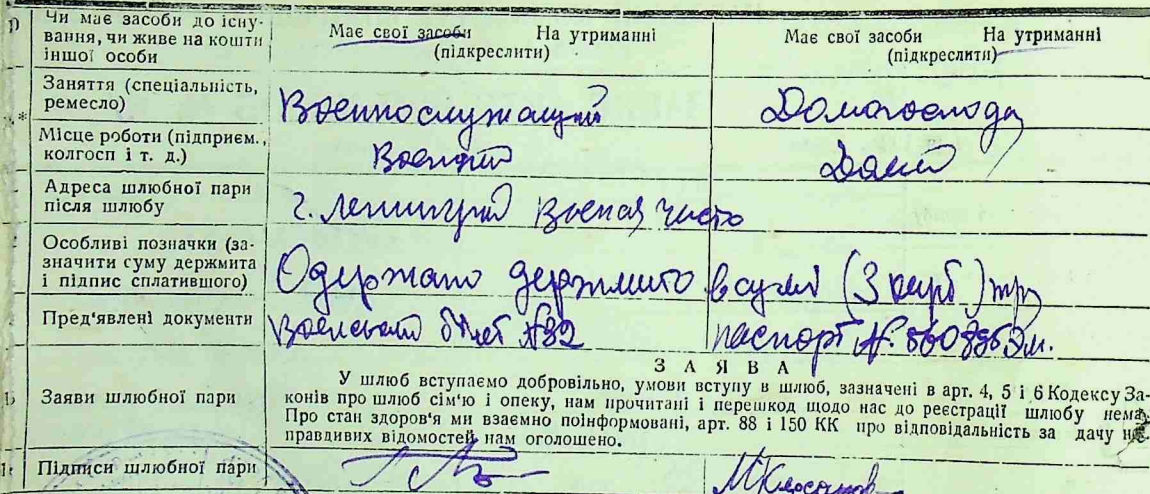 Чи має засоби до існу-
вання, чи живе на кошти
іншої особи
Має свої засоби На утриманні
(підкреслити)
Має свої засоби На утриманні
(підкреслити)
Заняття (спеціальність,
ремесло)
Военнослужащий
Домогоспода
Місце роботи (підприєм.,
колгосп і т. д.)
Дома
Адреса шлюбної пари
після шлюбу
г. Ленинград Военая часть
Особливі позначки (за-
значити суму держмита
і підпис сплатившого)
Одержано держмито в сумі (3 карб) три
Пред'явлені документи
билет №32
паспорт №
З А Я В А
Заяви шлюбної пари
У шлюб вступаємо добровільно, умови вступу в шлюб, зазначені в арт. 4, 5 і 6 Кодексу За-
конів про шлюб сім'ю і опеку, нам прочитані і перешкод щодо нас до реєстрації шлюбу нема.
Про стан здоров'я ми взаємно поінформовані, арт. 88 і 150 КК про відповідальність за дачу не-
правдивих відомостей нам оголошено.
Підписи шлюбної пари